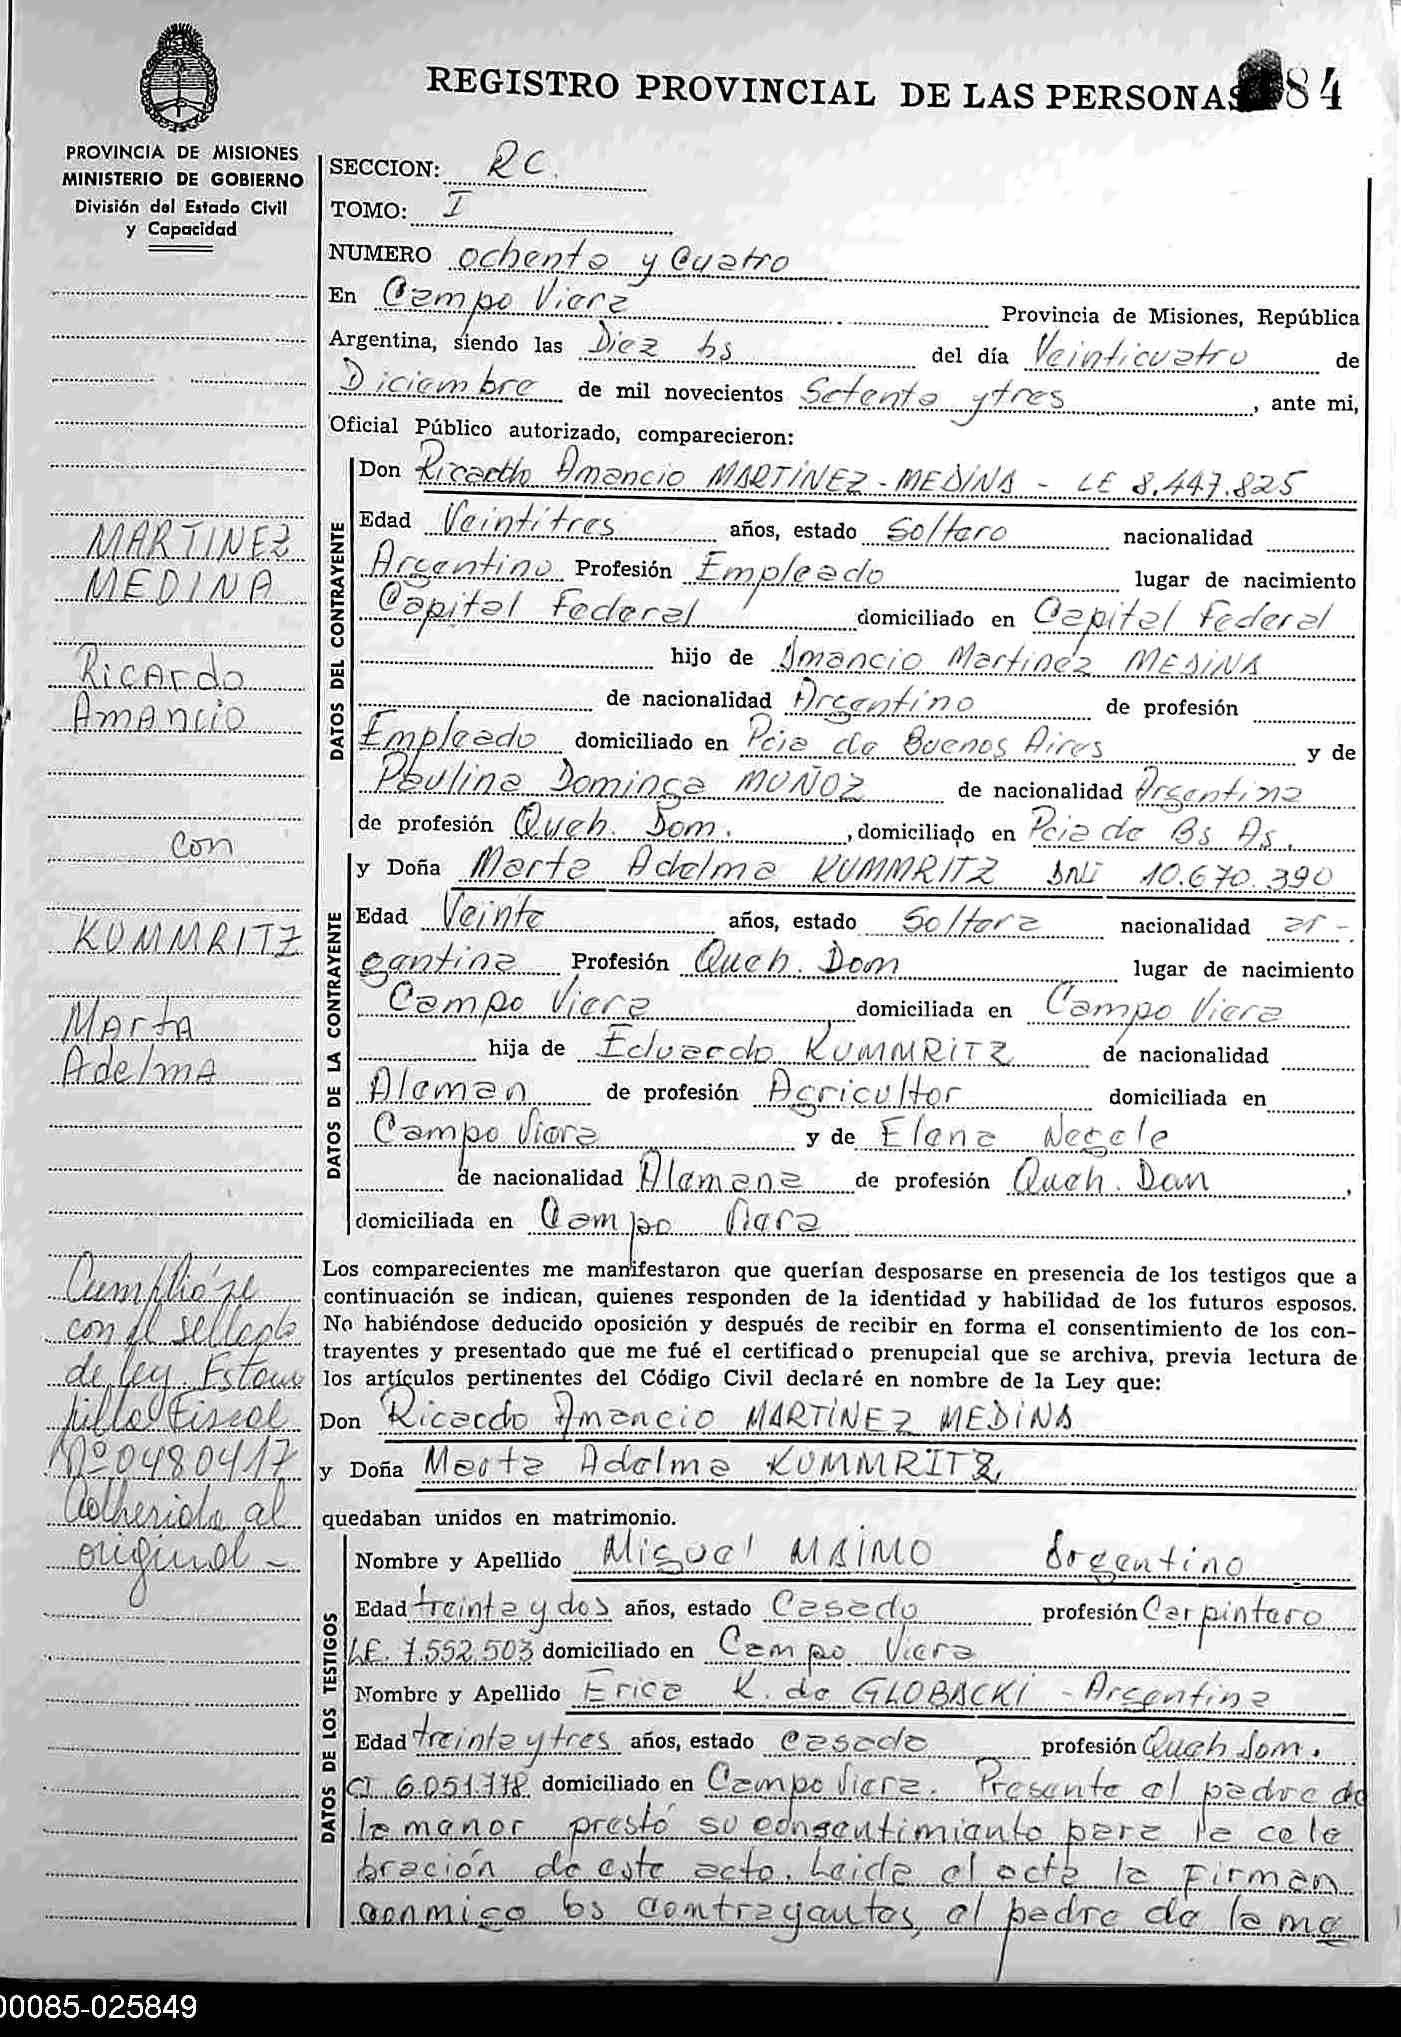 REGISTRO PROVINCIAL DE LAS PERSONAS 84
PROVINCIA DE MISIONES
MINISTERIO DE GOBIERNO
División del Estado Civil
y Capacidad
MARTINEZ
MEDINA
Ricardo
Amancio
con
KUMMRITZ
Marta
Adelma
Cumplió se
con el sellado
de ley. Estam
pilla Fiscal
Nº 0480417
Adherida al
original -
SECCION: RC.
TOMO: I
NUMERO ochenta y cuatro
En Campo Viera Provincia de Misiones, República
Argentina, siendo las Diez hs del día Veinticuatro de
Diciembre de mil novecientos Setenta y tres, ante mi,
Oficial Público autorizado, comparecieron:
DATOS DEL CONTRAYENTE
Don Ricardo Amancio MARTINEZ - MEDINA - LE 8.447.825
Edad Veintitres años, estado Soltero nacionalidad
Argentino Profesión Empleado lugar de nacimiento
Capital Federal domiciliado en Capital Federal
hijo de Amancio Martinez MEDINA
de nacionalidad Argentino de profesión
Empleado domiciliado en Pcia de Buenos Aires y de
Paulina Dominga MUÑOZ de nacionalidad Argentina
de profesión Queh. Dom., domiciliado en Pcia de Bs As.
DATOS DE LA CONTRAYENTE
y Doña Marta Adelma KUMMRITZ DNI 10.670.390
Edad Veinte años, estado Soltera nacionalidad ar-
gentina Profesión Queh. Dom lugar de nacimiento
Campo Viera domiciliada en Campo Viera
hija de Eduardo KUMMRITZ de nacionalidad
Aleman de profesión Agricultor domiciliada en
Campo Viera y de Elena Negele
de nacionalidad Alemana de profesión Queh. Dom,
domiciliada en Campo Viera
Los comparecientes me manifestaron que querían desposarse en presencia de los testigos que a
continuación se indican, quienes responden de la identidad y habilidad de los futuros esposos.
No habiéndose deducido oposición y después de recibir en forma el consentimiento de los con-
trayentes y presentado que me fué el certificado prenupcial que se archiva, previa lectura de
los artículos pertinentes del Código Civil declaré en nombre de la Ley que:
Don Ricardo Amancio MARTINEZ MEDINA
y Doña Marta Adelma KUMMRITZ,
quedaban unidos en matrimonio.
DATOS DE LOS TESTIGOS
Nombre y Apellido Miguel MAIMO Argentino
Edad treinta y dos años, estado Casado profesión Carpintero
LE. 7.552.503 domiciliado en Campo Viera
Nombre y Apellido Erica K. de GLOBACKI - Argentina
Edad treinta y tres años, estado casada profesión Queh Dom.
CI 6.051.778 domiciliado en Campo Viera. Presente el padre de
la menor prestó su consentimiento para la cele
bración de este acto. Leida el acta la Firman
conmigo los contrayentes, el padre de la me
00085-025849